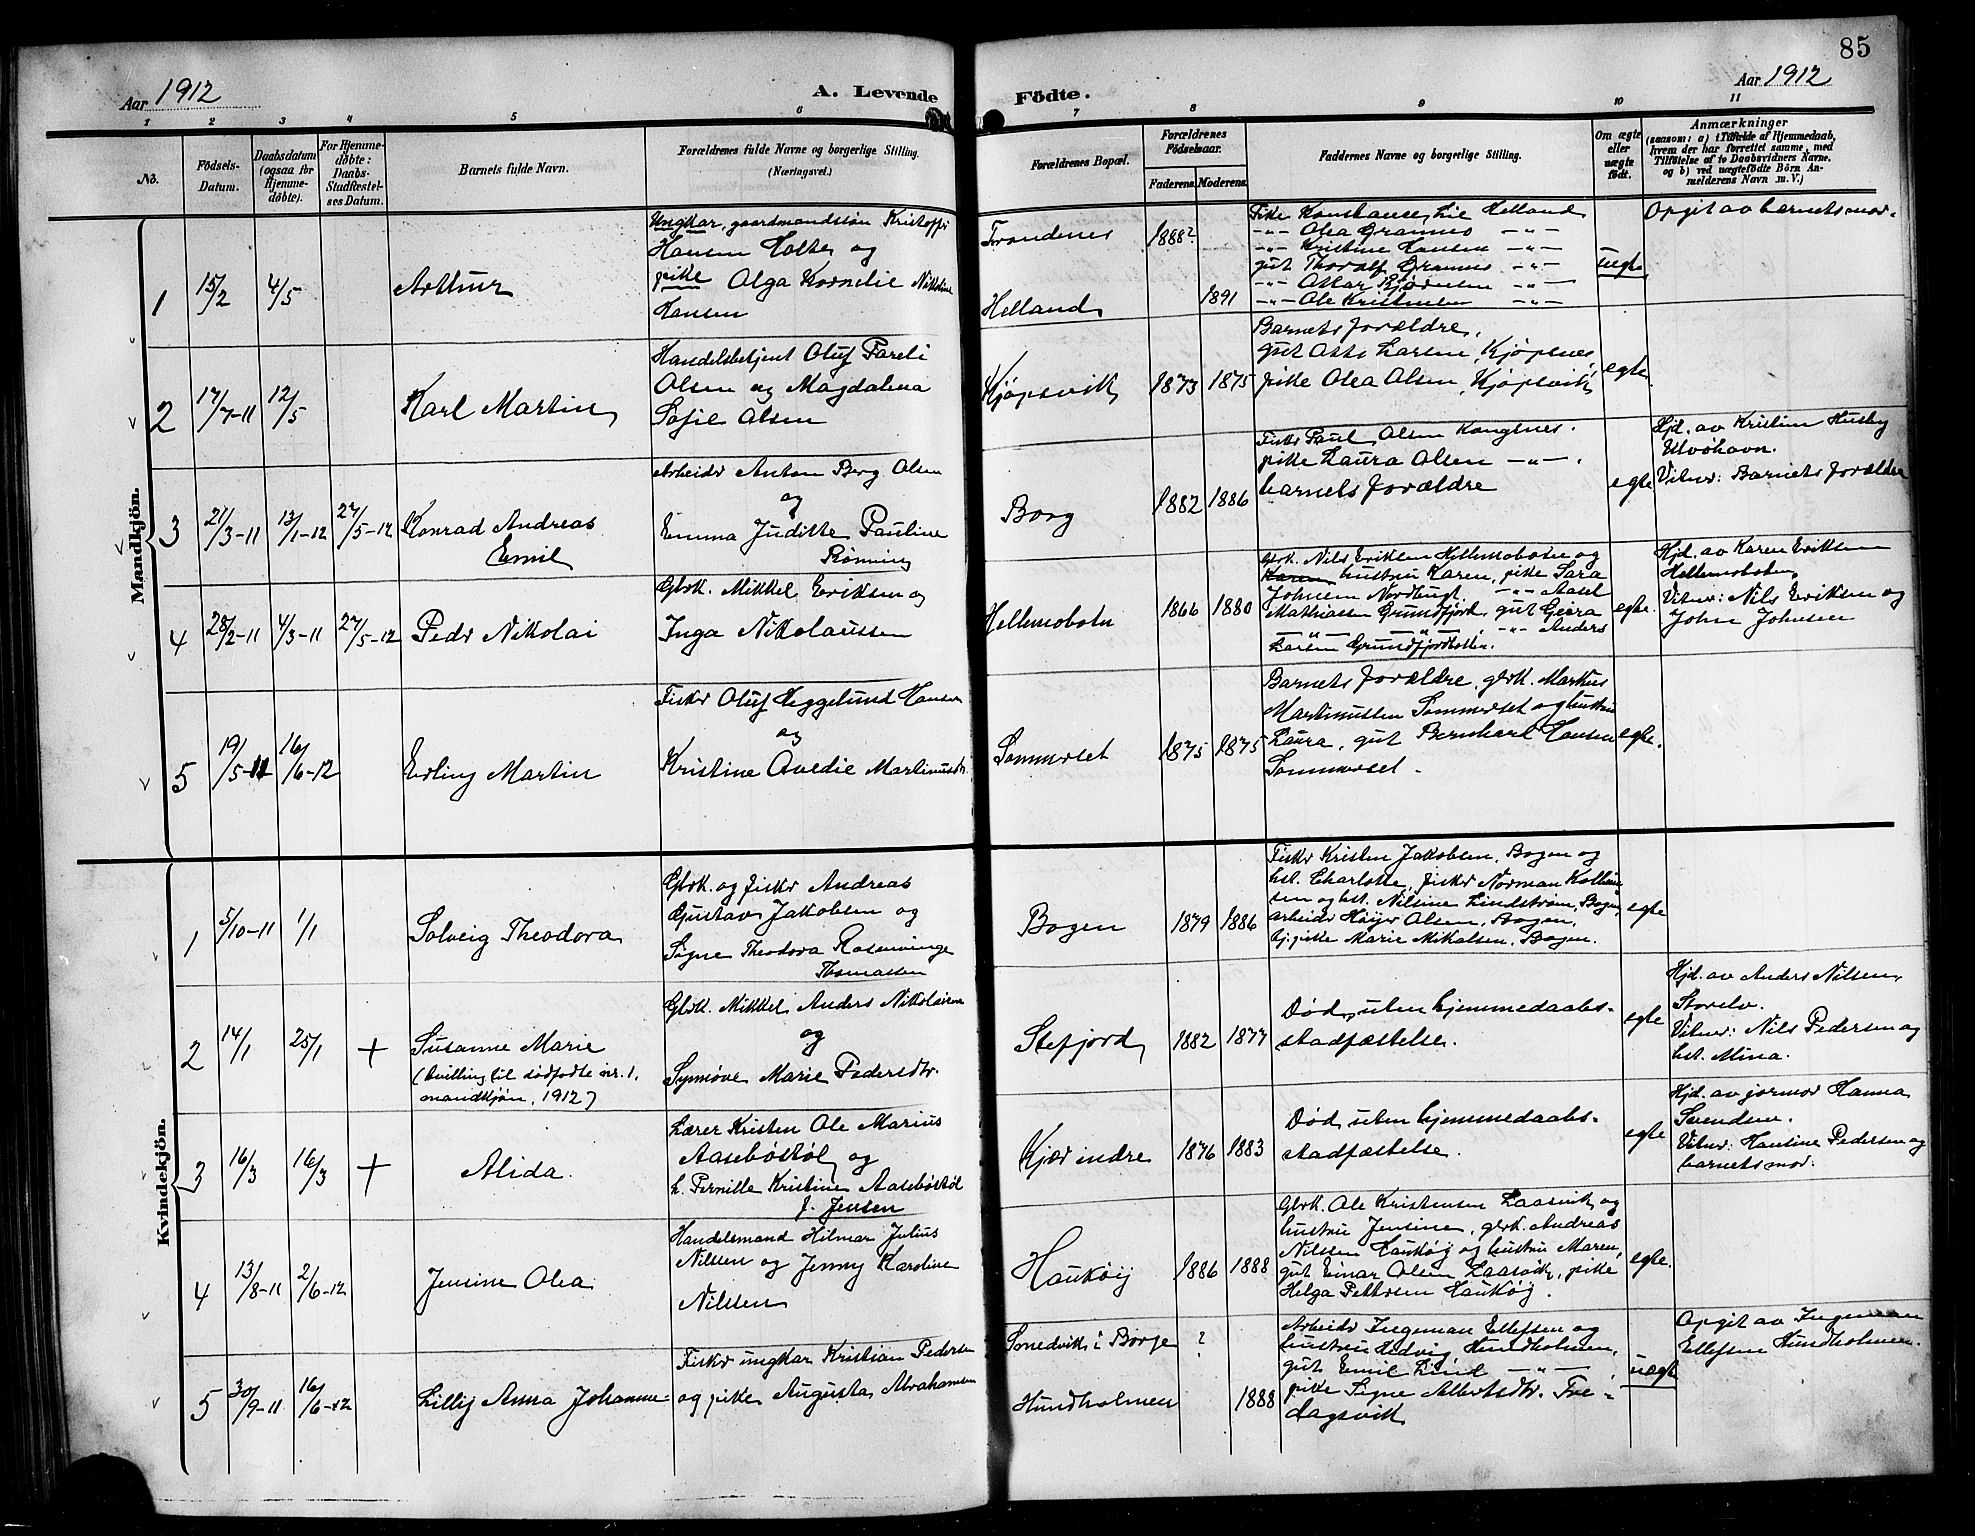 85
Aar 1912
A. Levende
Födte.
Aar 1912
1 2 3 4 5 6 7 8 9 10 11
No.
Födsels-
Datum.
Daabsdatum
(ogsaa for
Hjemme-
döbte).
For Hjemme-
döbte:
Daabs-
Stadfæstel-
ses Datum.
Barnets fulde Navn.
Forældrenes fulde Navne og borgerlige Stilling.
(Næringsvei.)
Forældrenes Bopæl.
Forældrenes
Födselsaar.
Faderens. Moderens.
Faddernes Navne og borgerlige Stilling.
Om ægte
eller
uægte
födt.
Anmærkninger
(saasom: a) i Tilfælde af Hjemmedaab,
hvem der har forrettet samme, med
Tilföielse af to Daabsvidners Navne.
og b) ved uægtefödte Börn An-
melderens Navn m. V.)
Mandkjön.
1
15/2
4/5
Arthur
Ungkar, gaardmandssøn Kristoffr
Hansen Holte og
pike Olga Kornelie Nikoline
Hansen
Trondenes
Helland
1888?
1891
Pike Konstanse Lie Helland
-"- Olea Grannes -"-
-"- Kristine Hansen -"-
gut Thoralf Grannes -"-
-"- Ottar Bjørnsen -"-
-"- Ole Kristensen -"-
uegte
Opgit av barnets mor.
2
17/7-11
12/5
Karl Martin
Handelsbetjent Oluf Pareli
Olsen og Magdalena
Sofie Olsen
Kjøpsvik
1873 1875
Barnets forældre,
gut Otto Larsen, Kjøpsnes,
pike Olea Olsen, Kjøpsvik
egte.
3
21/3-11
13/1-12
27/5-12
Konrad Andreas
Emil
Arbeidr Anton Berg Olsen
og
Emma Juditte Pauline
Rønning
Borg
1882 1886
Fiskr Paul Olsen Kongsnes.
pike Laura Olsen -"-.
barnets forældre
egte
Hjd. av Kristine Husby
Ulvøhavn.
Vitner: Barnets forældre
4
28/2-11
4/3-11
27/5-12
Pedr Nikolai
Gbrk. Mikkel Eriksen og
Inga Nikolaussen
Hellemobotn
1866 1880
Gbrk. Nils Eriksen Hellemobotn og
Karen hustru Karen, pike Sara
Johnsen Nordbugt. -"- Aasel
Mathiasen Grundfjord, gut Geira
-"- -"- -"- Anders
Larsen Grundfjordbotten.
egte.
Hjd. av Karen Eriksen
Hellemobotn,
Vitner: Nils Eriksen og
John Johnsen
5
19/5-11
16/6-12
Erling Martin
Fiskr Oluf Heggelund Hansen
og
Kristine Avedie Martinusdtr.
Sommerset
1875 1875
Barnets forældre, gbrk. Markus
Martinussen Sommerset og hustru
Laura, gut Bernhard Hansen
Sommerset.
egte.
Kvindekjön.
1
5/10-11
1/1
Solveig Theodora
Gbrk. og fiskr Andreas
Gustav Jakobsen og
Signe Theodora Rosenvinge
Thomassen
Bogen
1879 1886
Fiskr Kristen Jakobsen, Bogen og
hst. Charlotte, fiskr Norman
og hst. Nilsine Lindstrøm, Bogen,
arbeider Høijer Olsen, Bogen,
tj.pike Marie Mikalsen, Bogen.
egte
2
14/1
25/1
+
Susanne Marie
(tvilling til dødfødte nr. 1,
mandkjøn, 1912)
Gbrk. Mikkel Anders Nikolaisen
og
Synnøve Marie Pedersdtr.
Stefjord
1882 1877
Død uten hjemmedaabs-
stadfæstelse.
egte
Hjd. av Anders Nilsen,
Storelv.
Vitner: Nils Pedersen og
hst. Mina.
3
16/3
16/3
+
Alida.
Lærer Kristen Ole Marius
Aasebøstøl og
h. Pernille Kristine Aasebøstøl
f. Jensen
Kjær indre
1876 1883
Død uten hjemmedaabs-
stadfæstelse.
egte
Hjd. av jormor Hanna
Svendsen.
Vitner: Hansine Pedersen og
barnets mor.
4
13/8-11
2/6-12
Jensine Olea
Handelsmand Hilmar Julius
Nilsen og Jenny Karoline
Nilsen
Haukøy
1886 1888
Gbrk. Ole Kristensen Laasvik og
hustru Jensine, gbrk. Andreas
Nilssen Haukøy og hustru Maren,
gut Einar Olsen Laasvik, pike
Helga Pettersen Haukøy.
egte.
5
30/9-11
16/6-12
Lilly Anna Johanne
Fiskr ungkar Kristian Pedersen
og pike Augusta Abrahamsen
i Borge
Hundholmen
?
1888
Arbeidr Ingeman Ellefsen og
hustru Hedvig Hundholmen,
gut Emil Lind -"-
pike Signe Albertsdtr. Tre-
dagsvik
uegte
Opgit av Ingeman
Ellefsen Hundholmen.